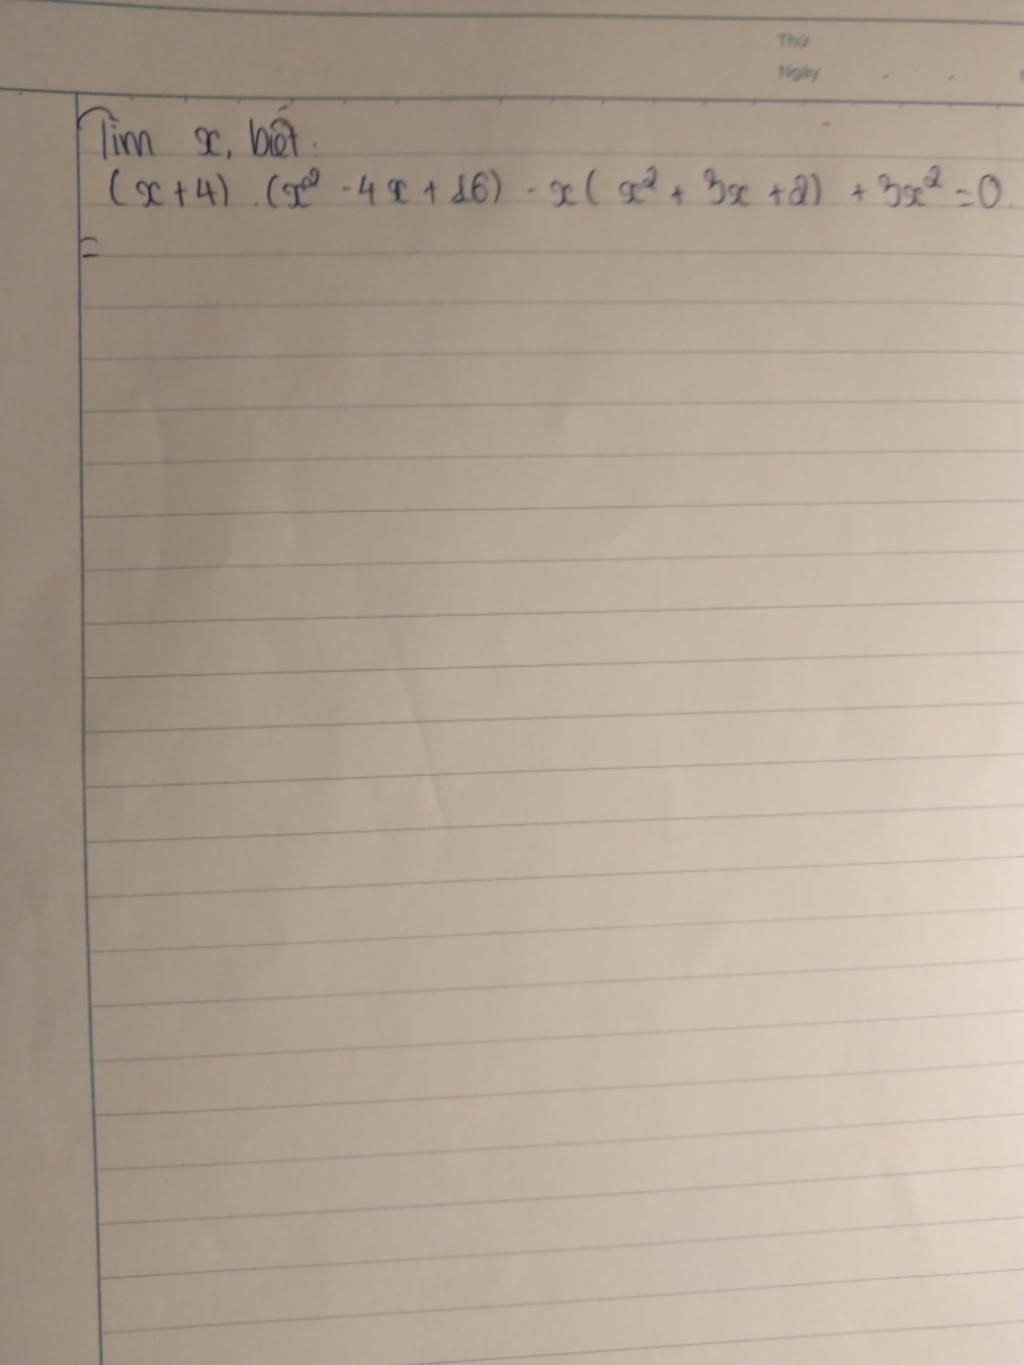 Thứ
Ngày
Tìm x, biết.
(x+4).(x² - 4x + 16) - x(x² + 3x + 2) + 3x² = 0.
=